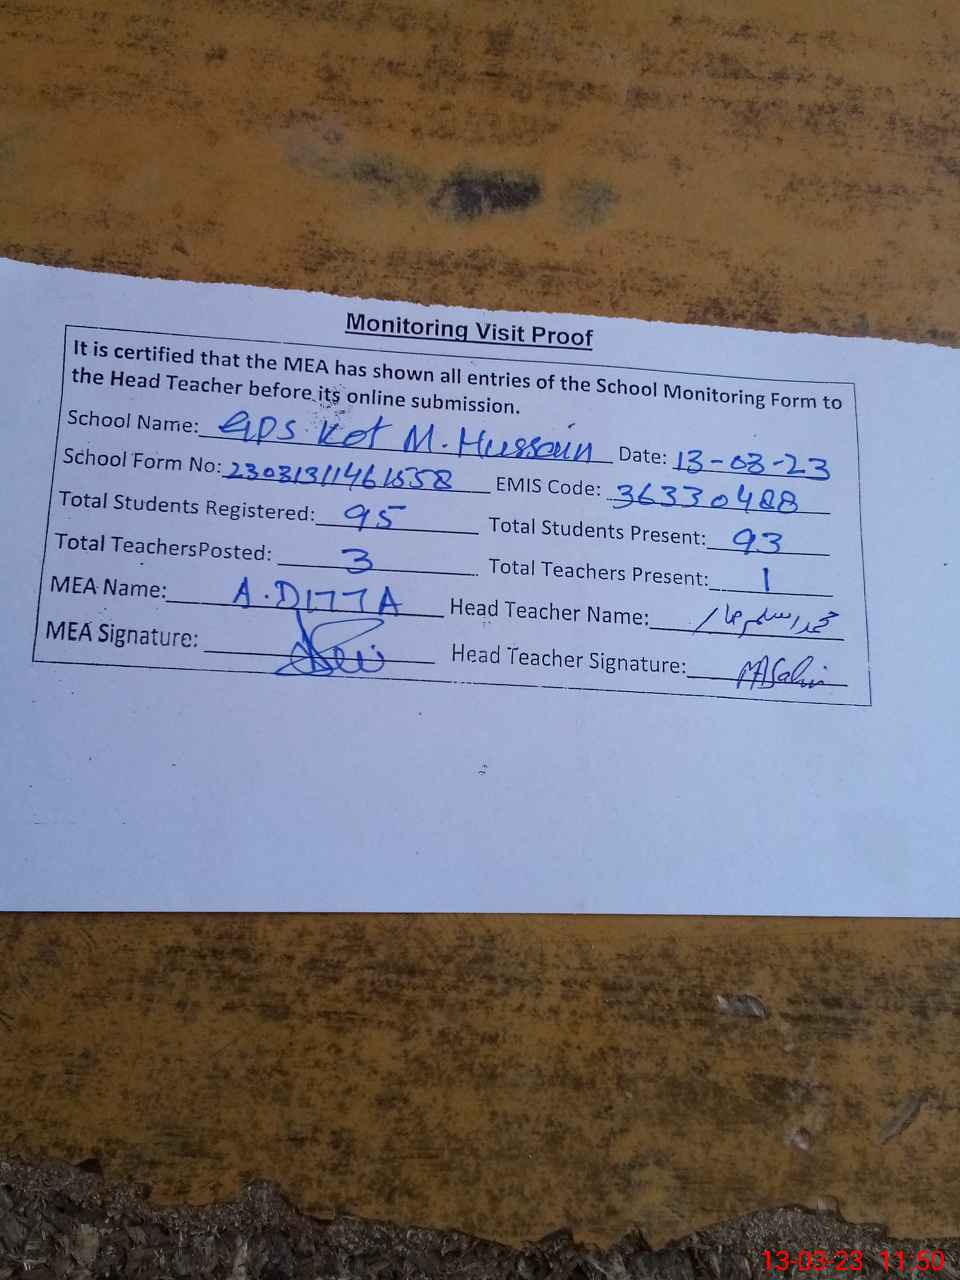 Monitoring Visit Proof
It is certified that the MEA has shown all entries of the School Monitoring Form to
the Head Teacher before its online submission.
School Name: GPS Kot M. Hussain Date: 13-03-23
School Form No: 23031311461558 EMIS Code: 36330488
Total Students Registered: 95 Total Students Present: 93
Total TeachersPosted: 3 Total Teachers Present: 1
MEA Name: A.DITTA Head Teacher Name: محمد اسلم
MEA Signature: Head Teacher Signature:
13-03-23 11:50